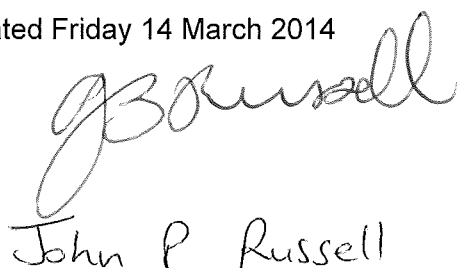 ated Friday 14 March 2014
JPRussell
John P Russell